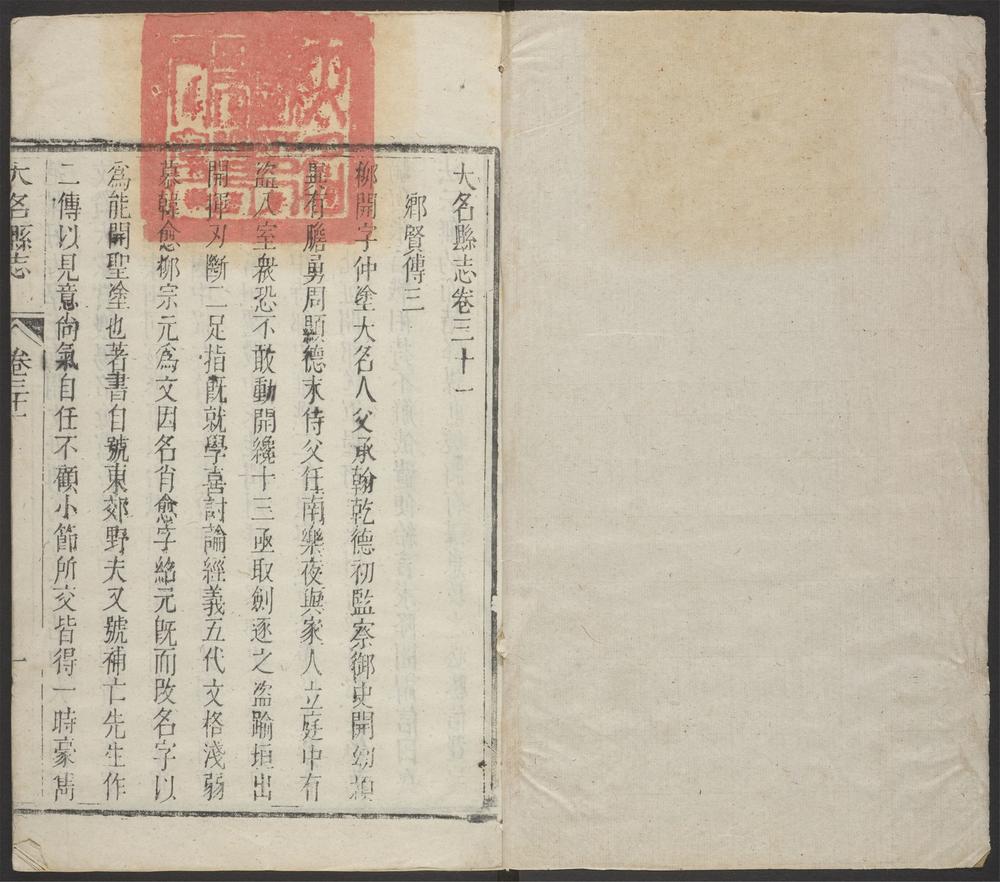 大名縣志卷三十一
鄉賢傳三
柳開字仲塗大名人父承翰乾德初監察御史開幼穎
異有膽勇周顯德末侍父任南樂夜與家人立庭中有
盜入室衆恐不敢動開纔十三亟取劍逐之盜踰垣出
開揮刃斷二足指旣就學喜討論經義五代文格淺弱
慕韓愈柳宗元爲文因名肖愈字紹元旣而改名字以
爲能開聖塗也著書自號東郊野夫又號補亡先生作
二傳以見意尙氣自任不顧小節所交皆得一時豪雋
大名縣志
卷三十一
一